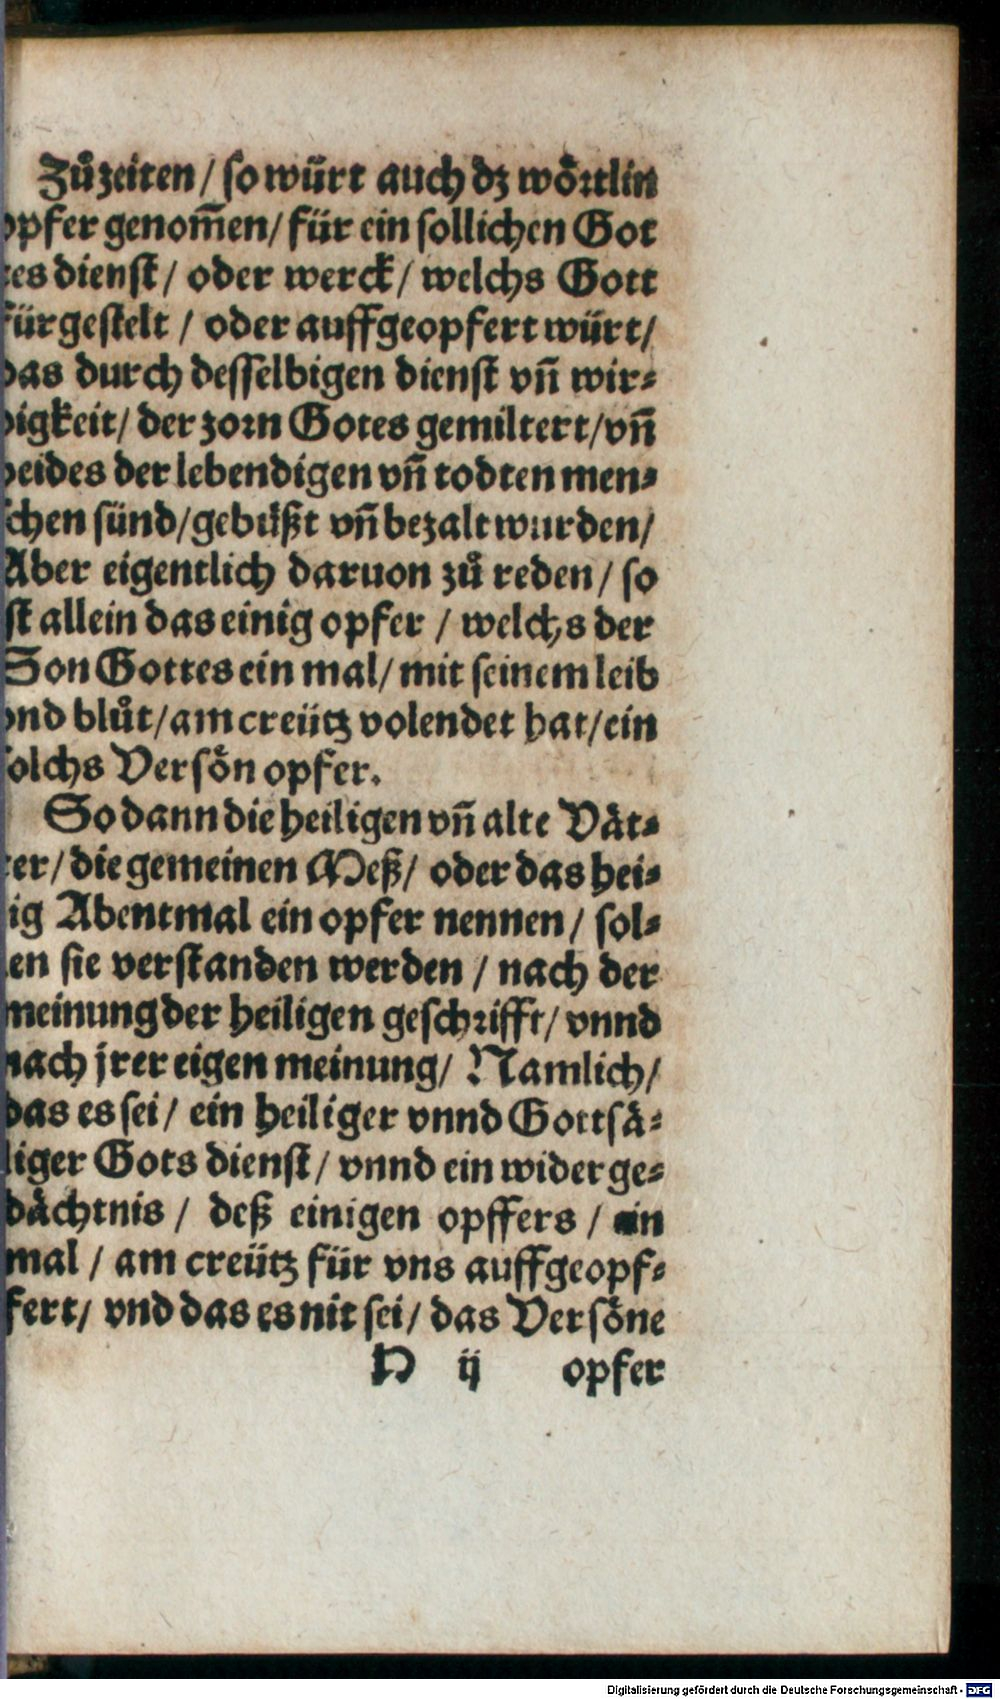 Zůzeiten / so würt auch dz wörtlin
opfer genom̄en / für ein sollichen Got
tes dienst / oder werck / welchs Gott
fürgestelt / oder auffgeopfert würt /
das durch desselbigen dienst vn̄ wir⸗
digkeit / der zorn Gotes gemiltert / vn̄
beides der lebendigen vn̄ todten men⸗
schen sünd / gebüßt vn̄ bezalt wurden /
Aber eigentlich daruon zů reden / so
ist allein das einig opfer / welchs der
Son Gottes ein mal / mit seinem leib
vnd blůt / am creütz volendet hat / ein
solchs Versön opfer.
So dann die heiligen vn̄ alte Vät⸗
ter / die gemeinen Meß / oder das hei⸗
lig Abentmal ein opfer nennen / sol⸗
len sie verstanden werden / nach der
meinung der heiligen geschrifft / vnnd
nach jrer eigen meinung / Namlich /
das es sei / ein heiliger vnnd Gottsä⸗
liger Gots dienst / vnnd ein widerge⸗
dächtnis / deß einigen opffers / ein
mal / am creütz für vns auffgeopf⸗
fert / vnd das es nit sei / das Versöne
N ij opfer
Digitalisierung gefördert durch die Deutsche Forschungsgemeinschaft - DFG